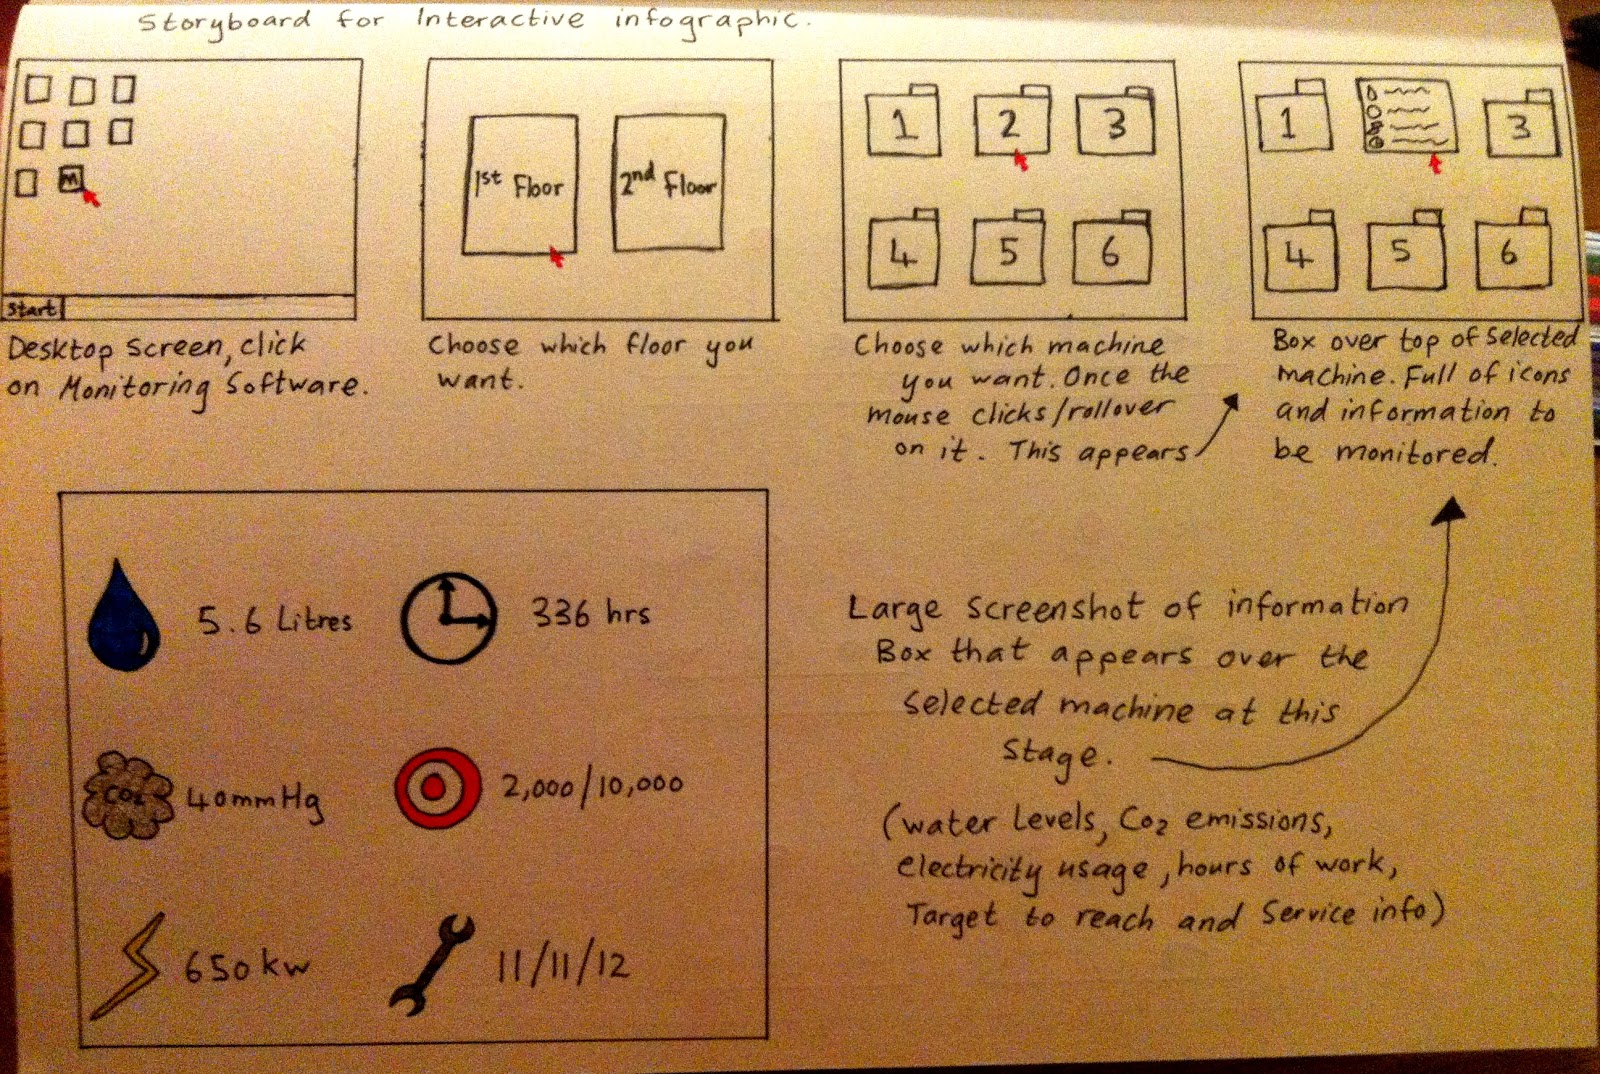 Storyboard for Interactive infographic.
M
Start
Desktop Screen, click
on Monitoring Software.
1st Floor
2nd Floor
Choose which floor you
want.
1 2 3
4 5 6
Choose which machine
you want. Once the
mouse clicks/rollover
on it. This appears
1 3
4 5 6
Box over top of selected
machine. Full of icons
and information to
be monitored.
5.6 Litres
336 hrs
CO2
40mmHg
2,000/10,000
650kw
11/11/12
Large Screenshot of information
Box that appears over the
Selected machine at this
Stage.
(water Levels, Co2 emissions,
electricity usage, hours of work,
Target to reach and Service info)